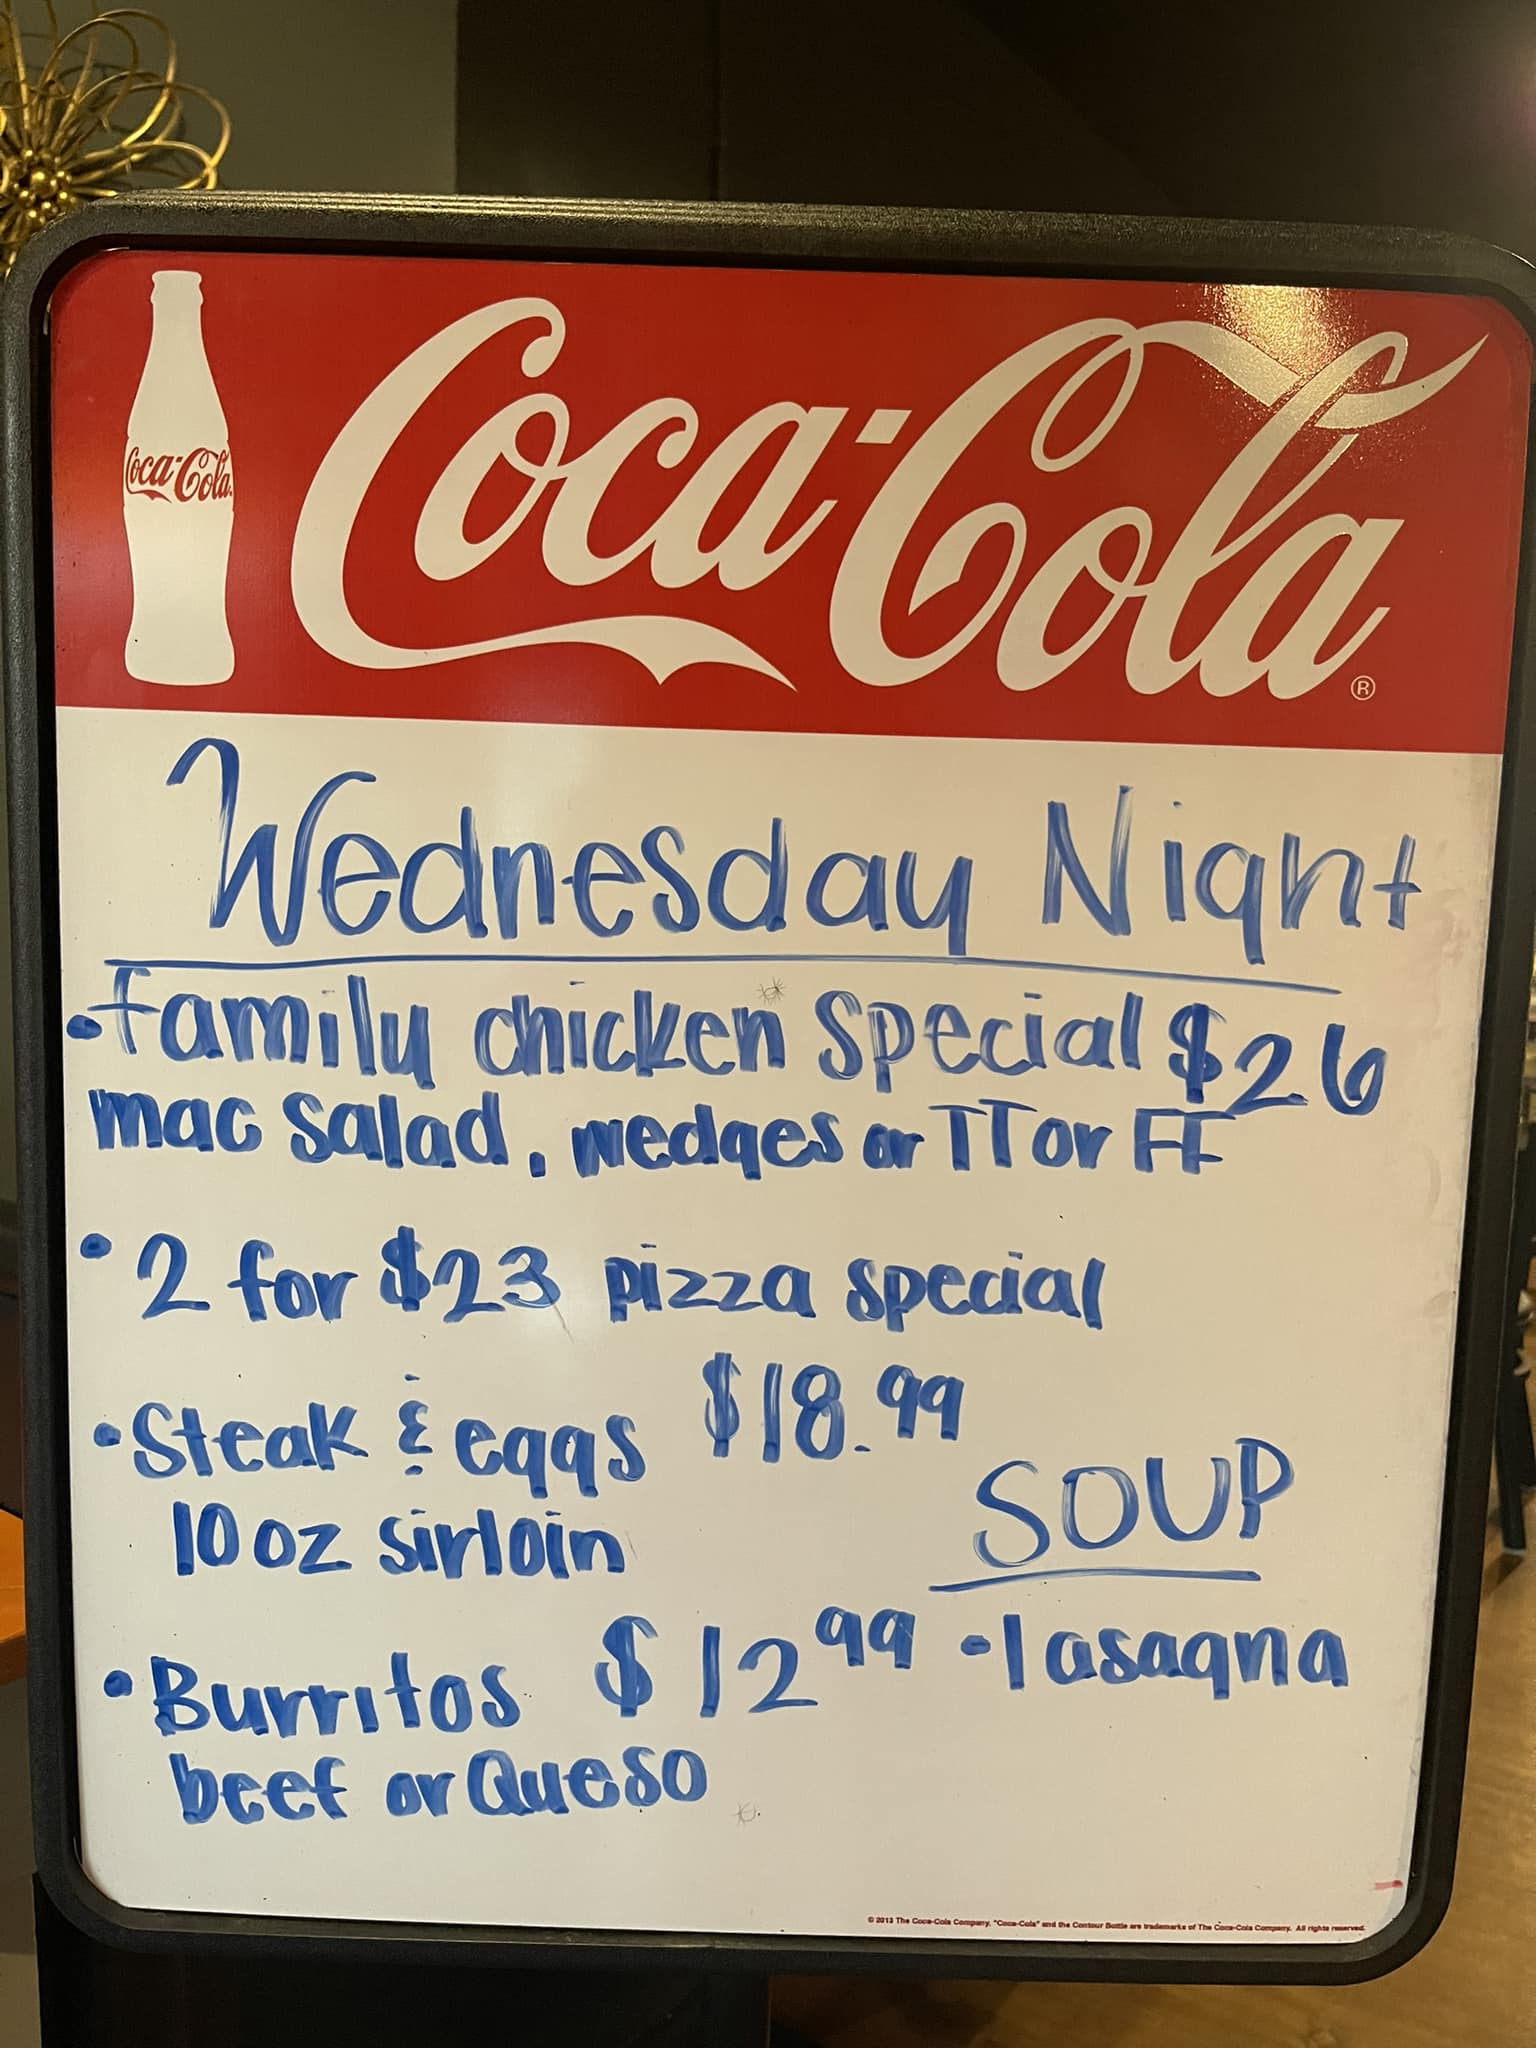 Coca-Cola
Coca-Cola®
Wednesday Night
• Family chicken Special $26
mac salad, wedges or TT or FF
• 2 for $23 pizza special
• Steak & eggs $18.99
10 oz sirloin
SOUP
• Burritos $12.99
beef or Queso
• lasagna
© 2013 The Coca-Cola Company. "Coca-Cola" and the Contour Bottle are trademarks of The Coca-Cola Company. All rights reserved.